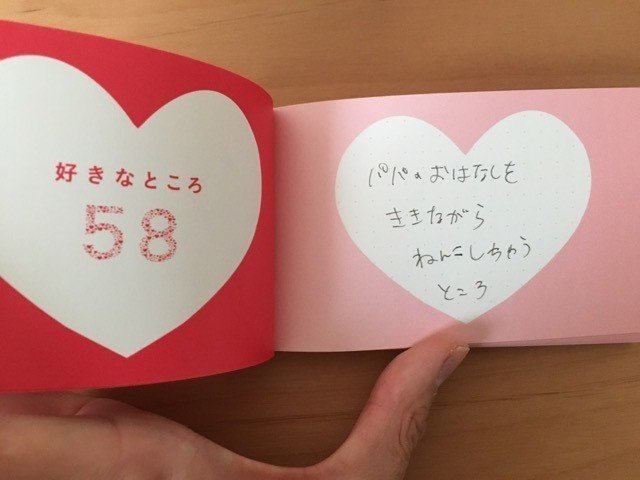 好きなところ
58
パパのおはなしを
ききながら
ねんこしちゃう
ところ